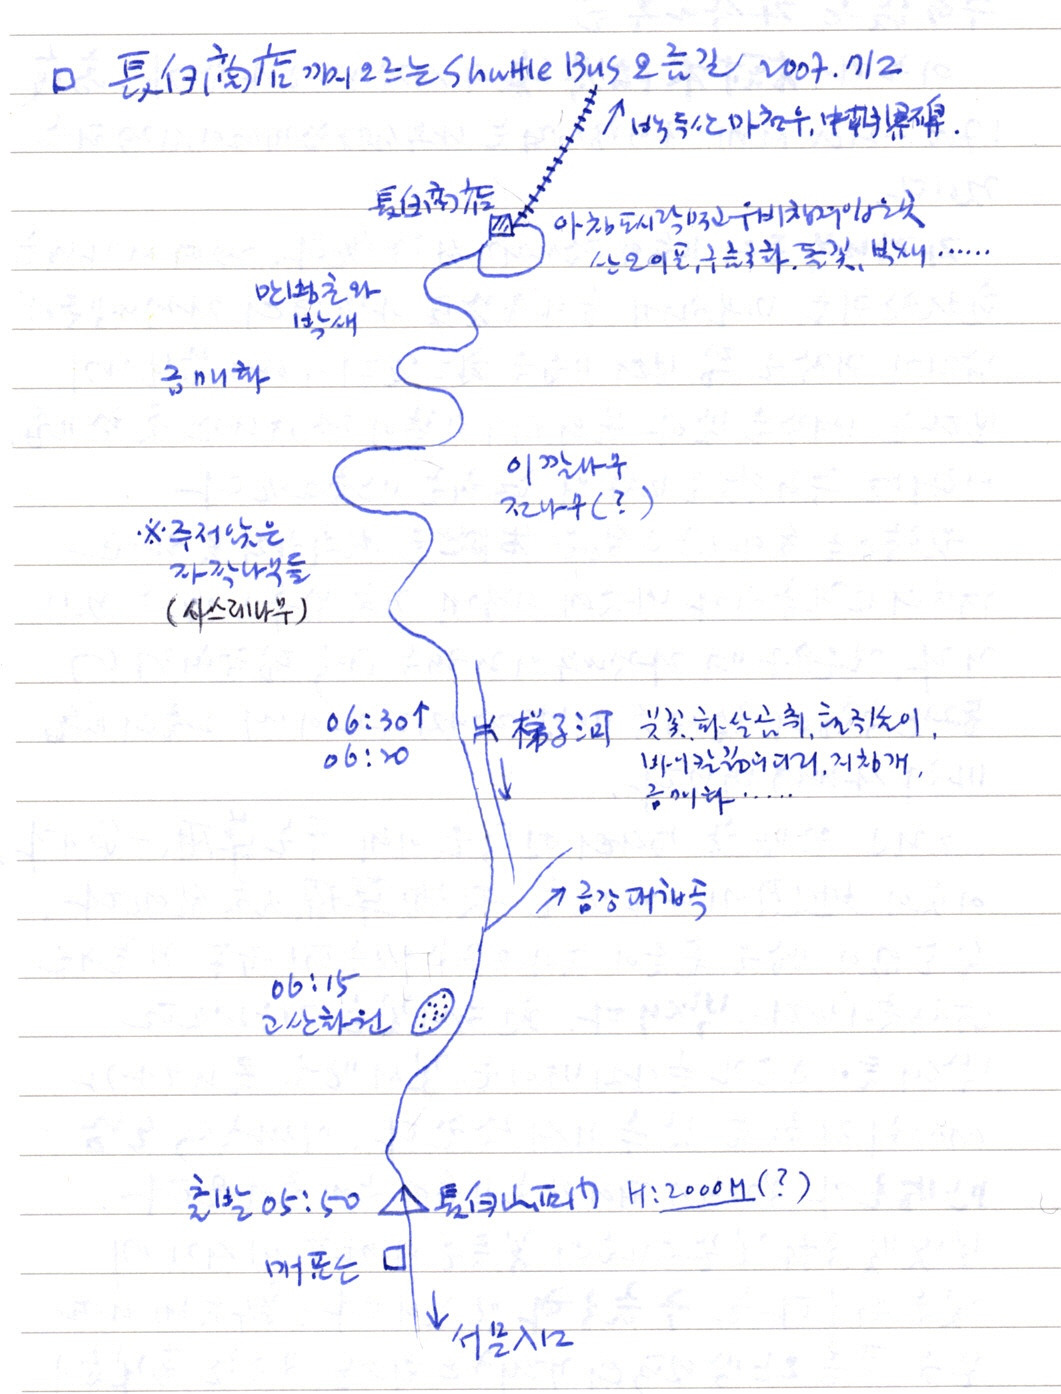 長白商店 까지 오르는 Shuttle Bus 오름길 2007. 7/2
↗ 백두산 마천우, 中
長白商店
아침 도시락 먹고 우비 챙겨입은 곳
산오이풀, 구름국화, 돌꽃, 박새 ......
만병초와
박새
금매화
이깔나무
전나무(?)
※ 주저앉은
자작나무들
(사스레나무)
06:30↑
06:20
梯子河
붓꽃, 화살곰취,
바이칼꿩의다리, 지칭개,
금매화 .....
↗ 금강대협곡
06:15
고산화원
출발 05:50
H: 2000M (?)
매표소
서문入口